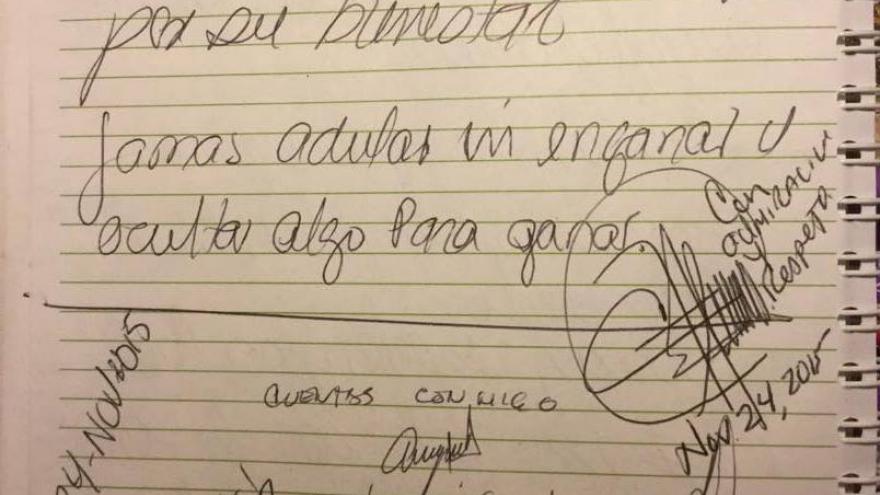 por su bienestar
Jamas adular ni enganar u
ocultar algo para ganar.
Con
admiración
y
Respeto
Nov 24, 2015
24-Nov-2015
CUENTAS CONMIGO